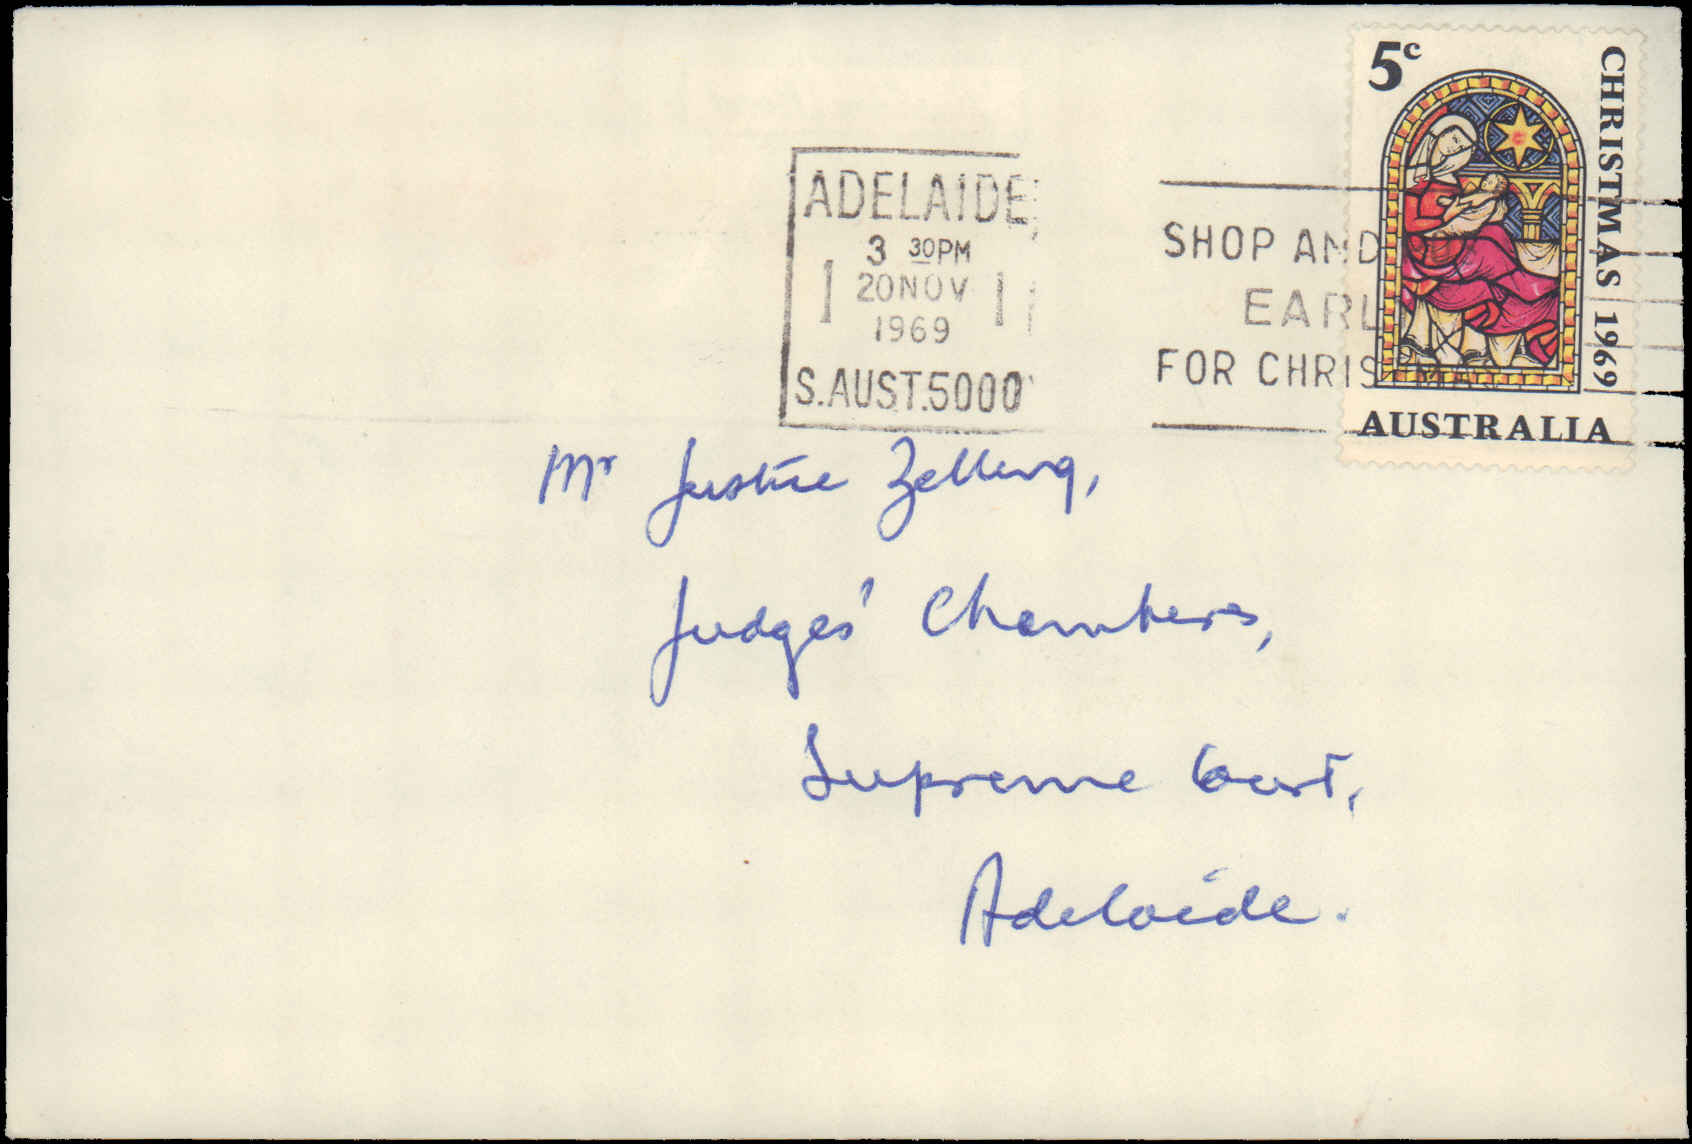 5c
CHRISTMAS 1969
AUSTRALIA
ADELAIDE
3 30PM
1 20NOV 1
1969
S.AUST.5000
SHOP AND
EARL
FOR CHRISTMAS
Mr Justice Zelling,
Judges' Chambers,
Supreme Court,
Adelaide.